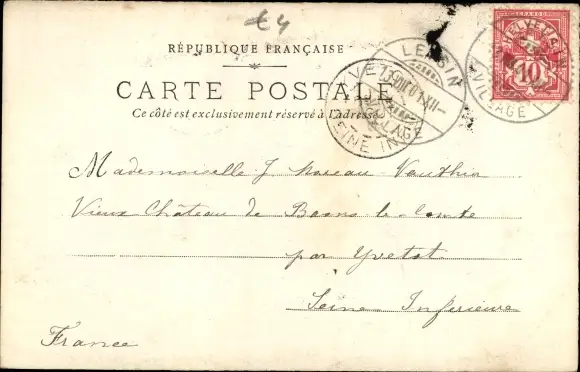 £4
RÉPUBLIQUE FRANÇAISE
CARTE POSTALE
Ce côté est exclusivement réservé à l'adresse
LEYSIN
VILLAGE
YVETOT
SEINE INF
HELVETIA
10
LEYSIN
VILLAGE
Mademoiselle J Moreau - Vauthier
Vieux Château de Bosns le-Comte
par Yvetot
Seine Inferieure
France